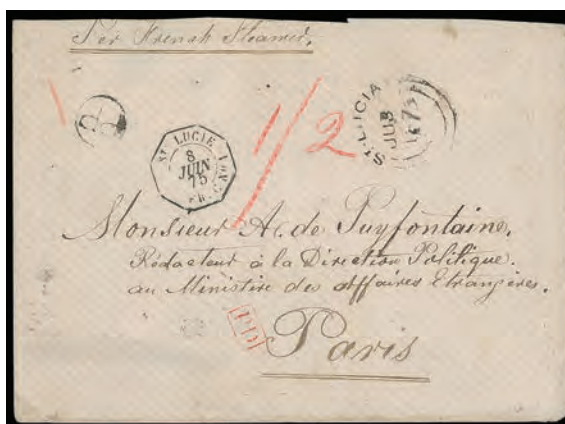 Per French Steamer.
ST. LUCIE
8
JUIN
75
1/2
ST. LUCIA
JU 8
75
Monsieur A. de Puyfontaine,
Rédacteur à la Direction Politique.
au Ministère des Affaires Etrangères.
PD
Paris